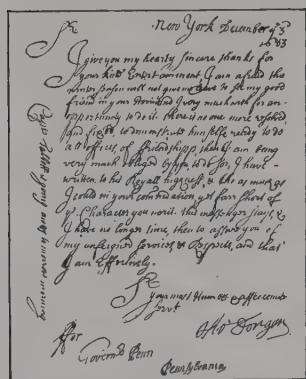 New York December ye 3d
1683
Sr
I give you my hearty sincere thanks for
your kind Entertainment I am afraid the
winter season will not give me leave to see my good
friend in our Province I very much wish for an
opportunity to do it. there is no one more resolved
and fixed, to demonstrate himselfe ready to do
all offices, of friendshipp then I am being
very much obliged by you to it Sr, I have
written to his Royall highness, & tho as much as
I could in your commendation yet farr short of
ye Character you merit. the messenger stays, &
I have no longer time, then to assure you of
my unfeigned services, & Respects, and that
I am Effectively.
Sr
your most Humble & affectionate
Servt
Tho Dongan
ffor
Governr Penn
Pennsylvania